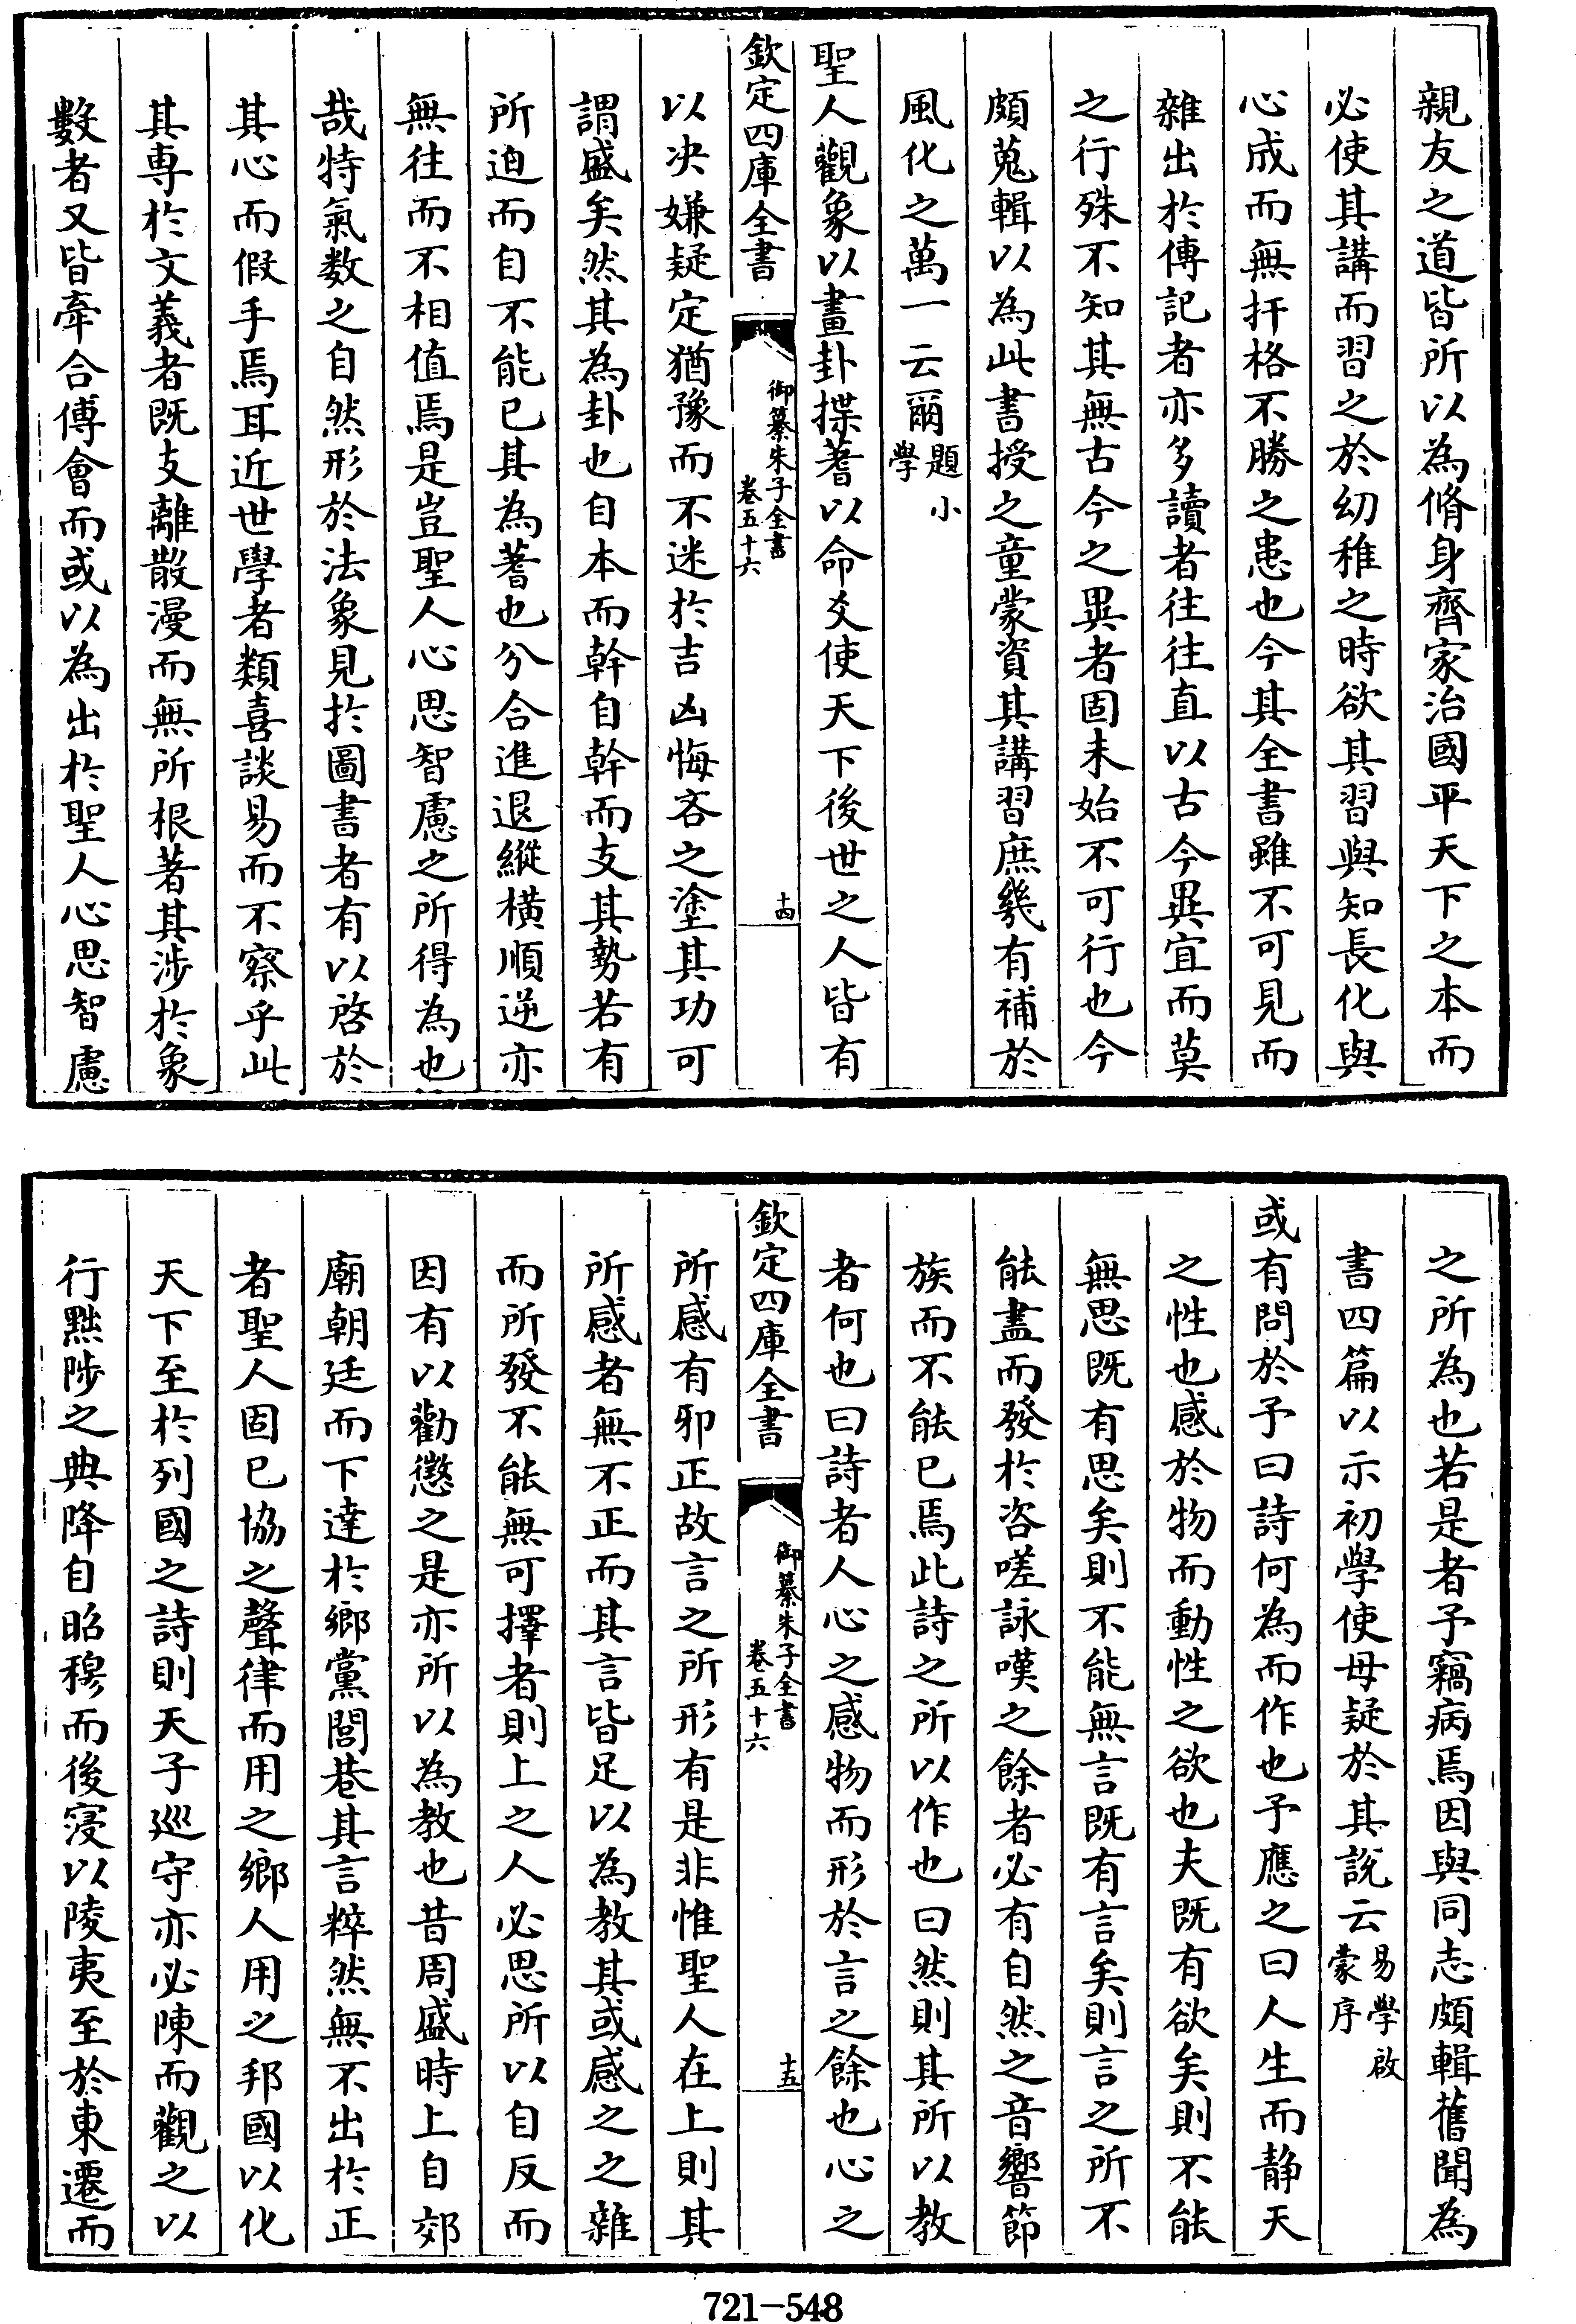 親友之道皆所以為脩身齊家治國平天下之本而
必使其講而習之於幼稚之時欲其習與知長化與
心成而無扞格不勝之患也今其全書雖不可見而
雜出於傳記者亦多讀者往往直以古今異宜而莫
之行殊不知其無古今之異者固未始不可行也今
頗蒐輯以為此書授之童蒙資其講習庶幾有補於
風化之萬一云爾題小學
聖人觀象以畫卦揲蓍以命爻使天下後世之人皆有
欽定四庫全書
御纂朱子全書
卷五十六
十四
以决嫌疑定猶豫而不迷於吉凶悔吝之塗其功可
謂盛矣然其為卦也自本而幹自幹而支其勢若有
所迫而自不能已其為蓍也分合進退縱橫順逆亦
無往而不相值焉是豈聖人心思智慮之所得為也
哉特氣数之自然形於法象見於圖書者有以啓於
其心而假手焉耳近世學者類喜談易而不察乎此
其專於文義者既支離散漫而無所根著其涉於象
數者又皆牽合傅會而或以為出於聖人心思智慮
之所為也若是者予竊病焉因與同志頗輯舊聞為
書四篇以示初學使毋疑於其說云易學啟蒙序
或有問於予曰詩何為而作也予應之曰人生而静天
之性也感於物而動性之欲也夫既有欲矣則不能
無思既有思矣則不能無言既有言矣則言之所不
能盡而發於咨嗟詠嘆之餘者必有自然之音響節
族而不能已焉此詩之所以作也曰然則其所以教
者何也曰詩者人心之感物而形於言之餘也心之
欽定四庫全書
御纂朱子全書
卷五十六
十五
所感有邪正故言之所形有是非惟聖人在上則其
所感者無不正而其言皆足以為教其或感之之雜
而所發不能無可擇者則上之人必思所以自反而
因有以勸懲之是亦所以為教也昔周盛時上自郊
廟朝廷而下達於鄉黨閭巷其言粹然無不出於正
者聖人固已協之聲律而用之鄉人用之邦國以化
天下至於列國之詩則天子巡守亦必陳而觀之以
行黜陟之典降自昭穆而後寖以陵夷至於東遷而
721-548